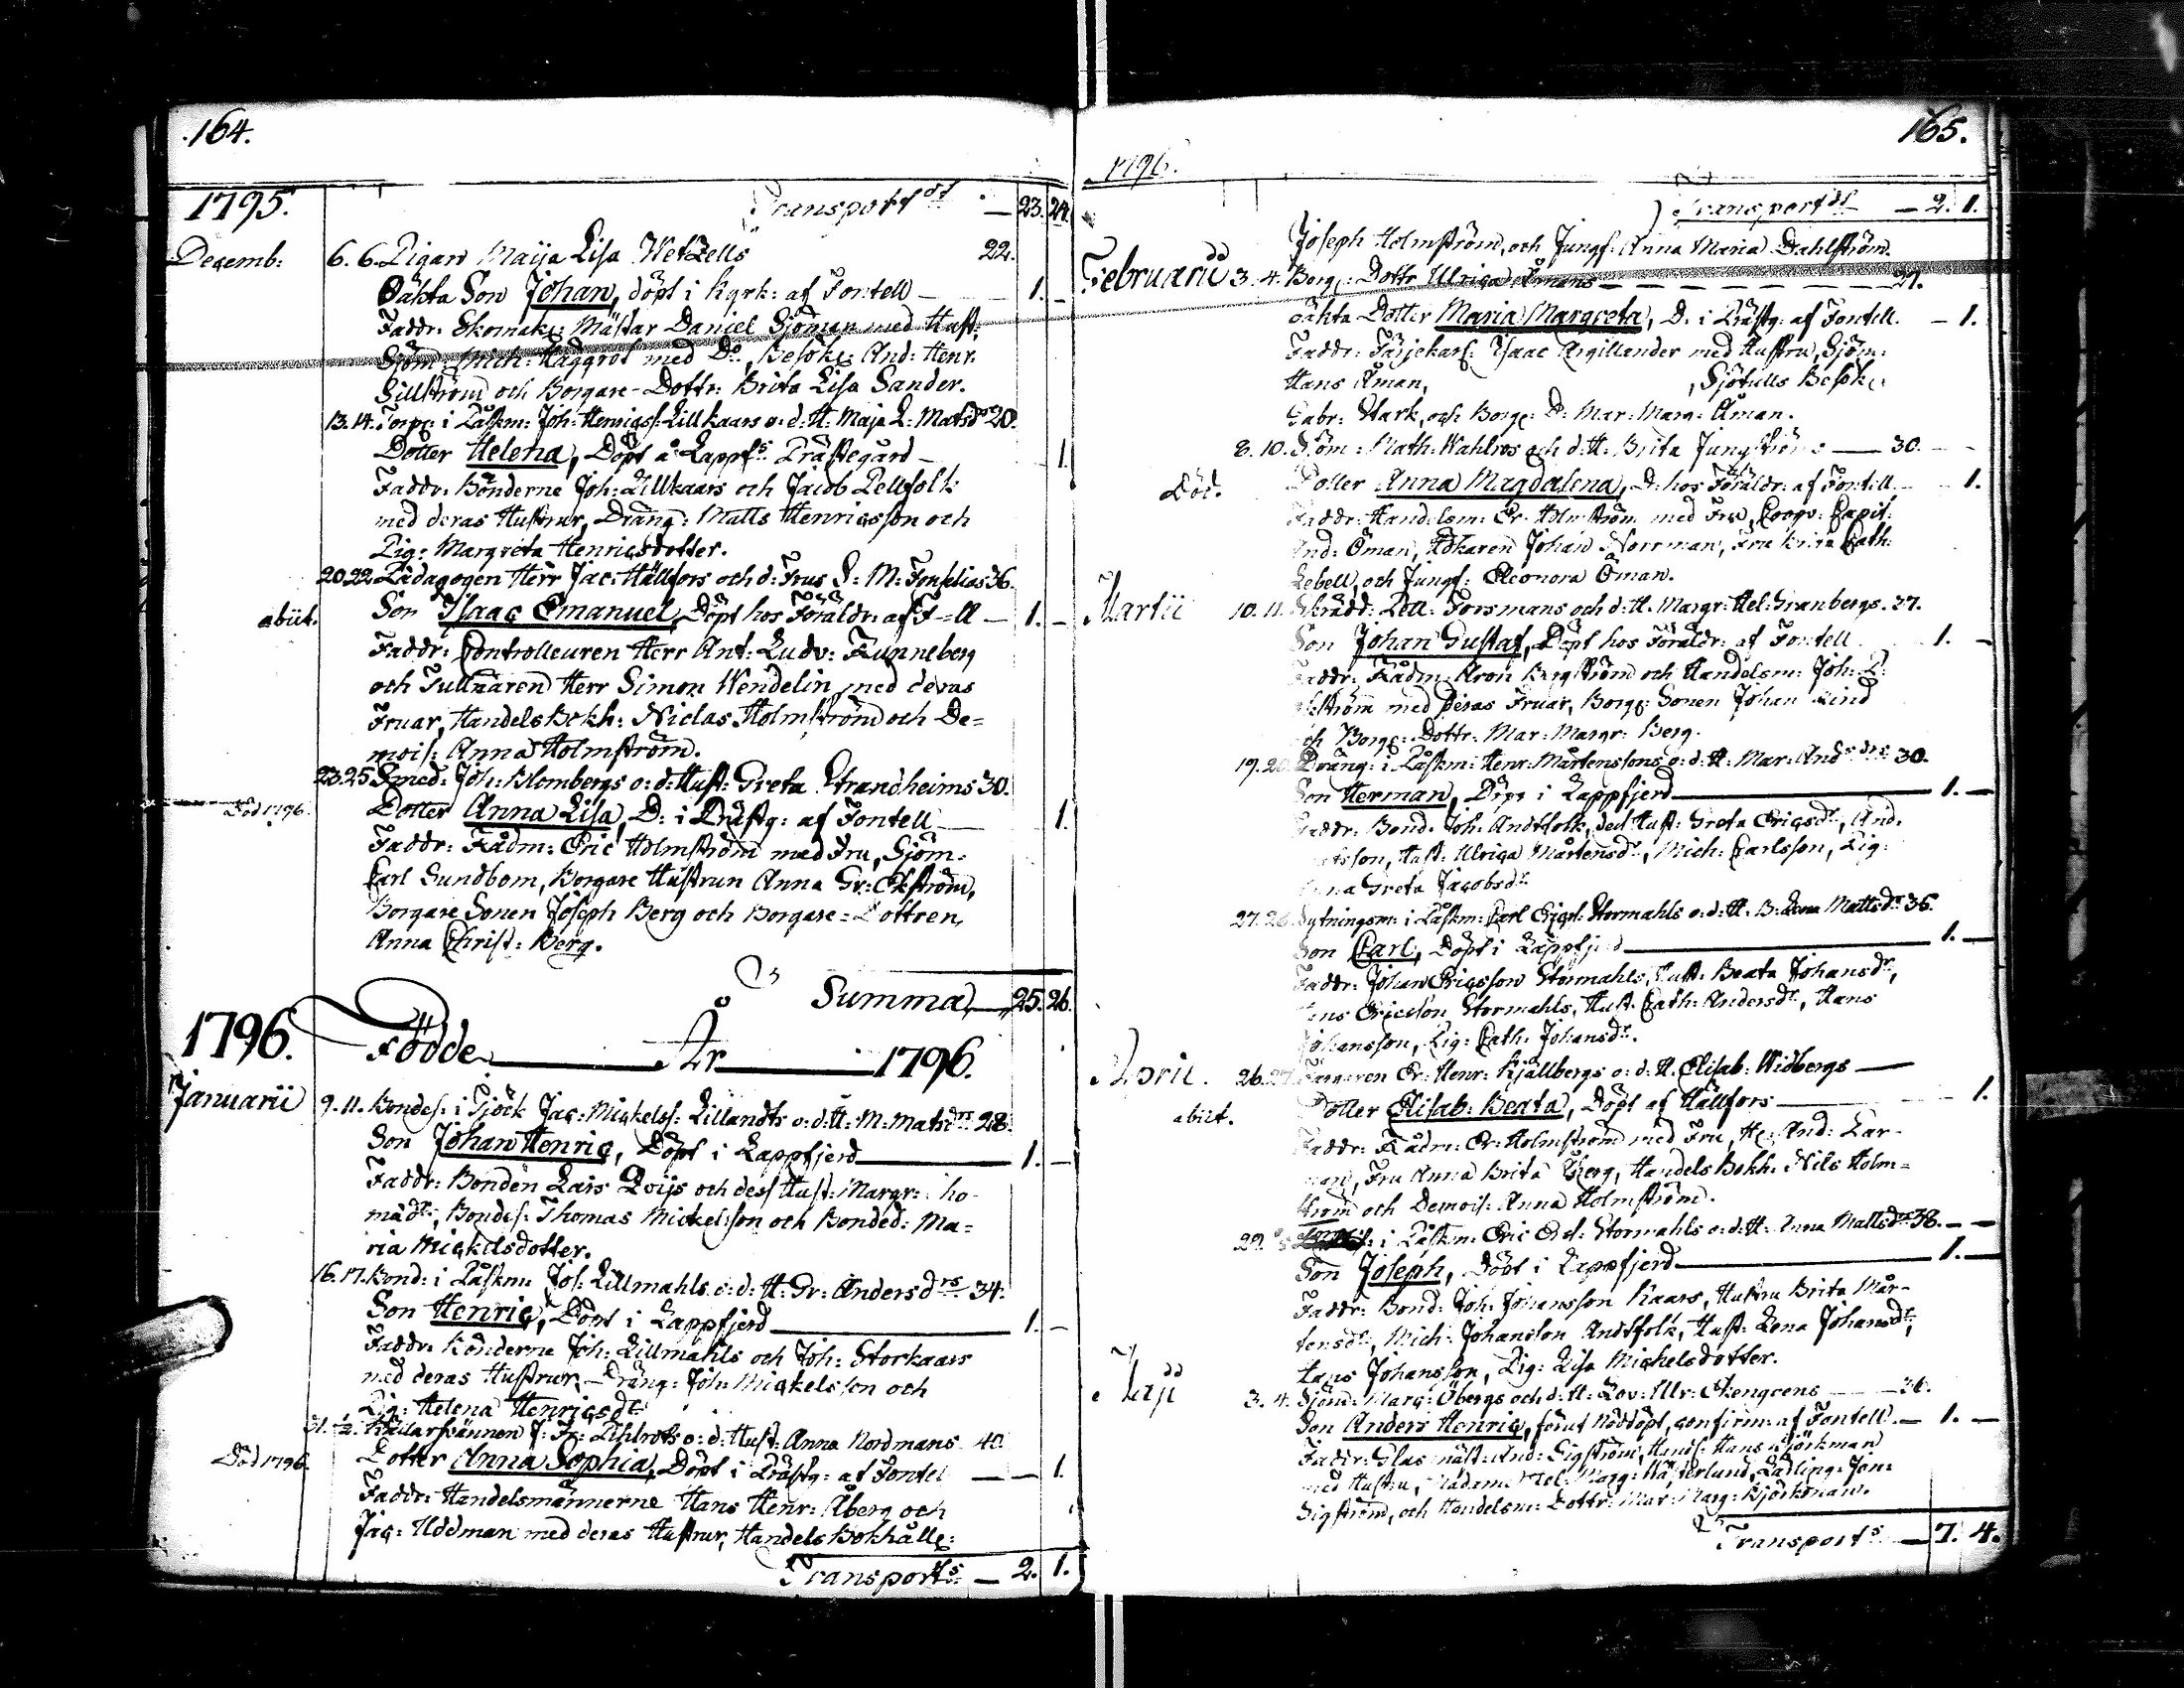 164.
1795.
Transport st — 23. 24.
Decemb: 6. 6. Pigan Maija Lisa Wetzells 22.
Oäkta Son Johan, döpt i Kyrk: af Fontell — 1. —
Faddr: Skomak: Mästar Daniel Sjöman med Hust:
Sjöm: Mich: Häggrot med Do, Besök: And: Henr.
Sillström och Borgare-Dottr: Brita Lisa Sander.
13. 14. Torp: i Låstm: Joh: Henrigss: Lillkaars o: d: H: Maja L: Matsd 20.
Dotter Helena, Döpt å Lappf: Prästegård — 1.
Faddr: Bönderne Joh: Lillkaars och Jacob Pellfolk
med deras Hustrur, Dräng: Matts Henricsson och
Pig: Margreta Henricsdotter.
20. 22. Pädagogen Herr Jac: Hällfors och d: Frus S: M: Fonselias 36.
abiit. Son Isaac Emanuel, Döpt hos Föräldr: af F=ll — 1. —
Faddr: Controlleuren Herr Ant: Ludv: Runneberg
och Tullnären Herr Simon Wendelin med deras
Fruar, Handels Bokh: Niclas Holmström och De=
mois: Anna Holmström.
23. 25. Smed: Joh: Blombergs o: d: Hust: Greta Strandheims 30.
Död 1796. Dotter Anna Lisa, D: i Prästg: af Fontell — 1.
Faddr: Rådm: Eric Holmström med Fru, Sjöm:
Carl Sundbom, Borgare Hustrun Anna Gr: Ekström,
Borgare Sonen Joseph Berg och Borgare=Dottren
Anna Christ: Berg.
Summa — 25. 26.
1796. Födde — År — 1796.
Januarii 9. 11. Bondes: i Tjöck Jac: Mickelss: Lillandts o: d: H: M: Matsdrs 28.
Son Johan Henric, Döpt i Lappfjerd — 1. —
Faddr: Bonden Lars Qvijs och dess Hust: Margr: Tho-
mädr, Bondes: Thomas Mickelsson och Bonded: Ma=
ria Mickelsdotter.
16. 17. Bond: i Låstm: Jos: Lillmahls o: d: H: Gr: Andersdrs 34.
Son Henric, Döpt i Lappfjerd — 1. —
Faddr: Bönderne Joh: Lillmahls och Joh: Storkaars
med deras Hustrur, Dräng: Joh: Mickelsson och
Pig: Helena Henricsdr
31. ½. Källarsvännen J: Fr: o: d: Hust: Anna Nordmans 40.
Död 1796. Dotter Anna Sophia, Döpt i Prästg: af Fontel — 1.
Faddr: Handelsmännerne Hans Henr: Åberg och
Jac: Uddman med deras Hustrur, Handels Bokhålle:
Transports — 2. 1.
165.
1796.
Transport st — 2. 1.
Joseph Holmström, och Jungf: Anna Maria Dahlström.
Februarii 3. 4. Borg: Dottr Ulrica Åmans — 27.
oäkta Dotter Maria Margreta, D: i Prästg: af Fontell. — 1.
Faddr: Färjekarl: Isaac Argillander med Hustru, Sjöm:
Hans Åman, , Sjötulls Besök:
Gabr: Stark, och Borg: D: Mar: Marg: Åman.
8. 10. Sjöm: Math: Wahlros och d: H: Brita Jungströms — 30. —
Död. Dotter Anna Magdalena, D: hos Föräldr: af Fontell. — 1.
Faddr: Handelsm: Er: Holmström med Fru, Coopv: Capit:
And: Öman, Rådkaren Johan Norrman, Fru Brita Cath:
Lebell, och Jungf: Eleonora Öman.
Martii 10. 11. Skrädd: Pett: Forsmans och d: H: Margr: Hel: Granbergs. 27.
Son Johan Gustaf, Döpt hos Föräldr: af Fontell 1. —
Faddr: Rådm: Aron Bergström och Handelsm: Joh:
ström med Deras Fruar, Borg: Sonen Johan Lind
och Borg: Dottr: Mar: Margr: Berg.
19. 20. Dräng: i Låstm: Henr: Mårtenssons o: d: H: Mar: Andsdrs 30.
Son Herman, Döpt i Lappfjerd — 1. —
Faddr: Bond: Joh: Andtfolk, dess Hust: Greta Ericsdr, And:
sson, Hust: Ulrica Mårtensdr, Mich: Carlsson, Pig:
Anna Greta Jacobsdr
27. 28. Sytningsm: i Låstm: Carl Ericss: Stormahls o: d: H: B: Lena Mattsdr 36.
Son Carl, Döpt i Lappfjerd — 1. —
Faddr: Johan Ericsson Stormahls, Hust: Beata Johansdr,
Ericsson Stormahls, Hust: Cath: Andersdr, Hans
Johansson, Pig: Cath: Johansdr.
April. 26. 27. Färgaren Er: Henr: Kjällbergs o: d: H: Elisab: Widbergs —
abiit. Dotter Elisab: Beata, Döpt af Hällfors — 1.
Faddr: Rådm: Er: Holmström med Fru, Hr: And: Car-
man, Fru Anna Brita Åberg, Handels Bokh: Nils Holm=
ström och Demois: Anna Holmström.
29. i Låstm: Eric Ericss: Stormahls o: d: H: Anna Mattsdr 38. — —
Son Joseph, Döpt i Lappfjerd — 1. —
Faddr: Bond: Joh: Johansson Kaars, Hustru Brita Mår-
tensdr, Mich: Johansson Andtfolk, Hust: Lena Johansdr,
Hans Johansson, Pig: Lisa Mickelsdotter.
Maji 3. 4. Sjöm: Marc: Öbergs och d: H: Lov: Ulr: Ekengrens — 36.
Son Anders Henric, förut Nöddöpt, confirm: af Fontell. — 1. —
Faddr: Glasmäst: And: Sigström, Hands: Hans Björkman
med Hustru, Madame Hel: Marg: Wästerlund, Lädling: Jon:
Sigström, och Handelsm: Dottr: Mar: Marg: Björkman.
Transports — 7. 4.